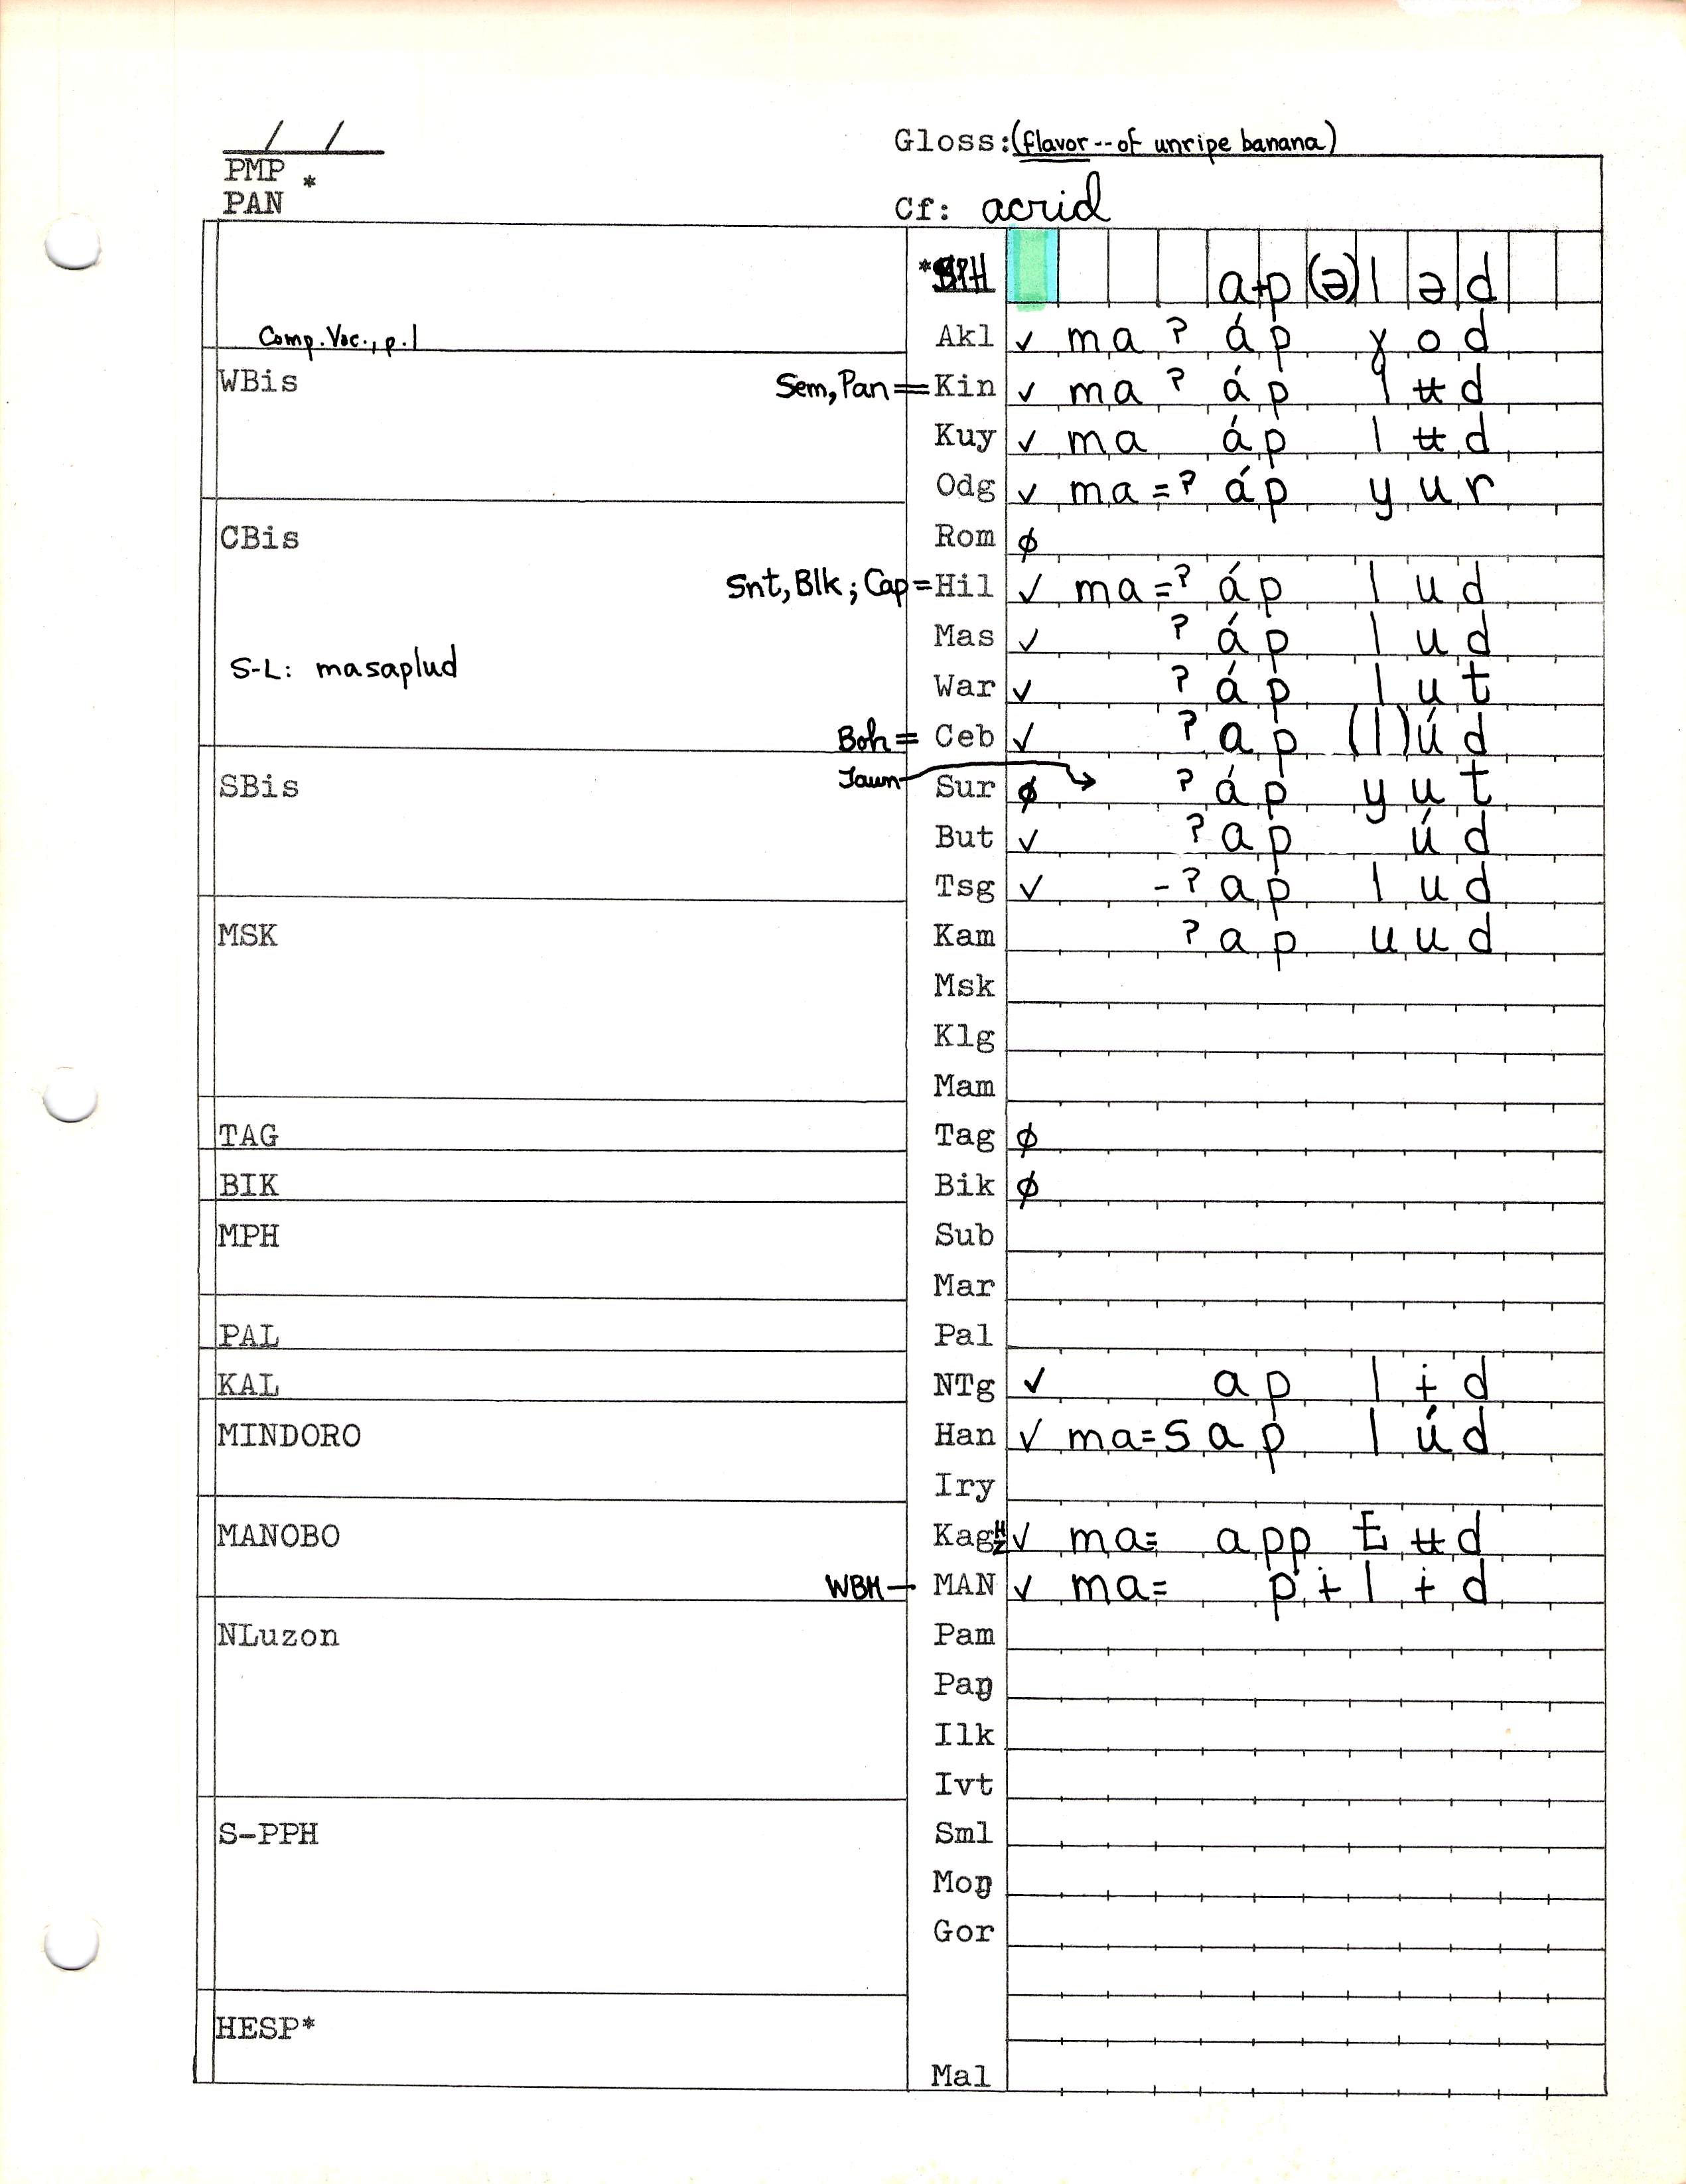 / /
Gloss: (flavor -- of unripe banana)
PMP *
PAN
Cf: acrid
* a+p(ə)ləd
Comp. Voc., p. 1
Akl ✓ ma ʔ áp ɣod
WBis
Sem, Pan = Kin ✓ ma ʔ áp lʉd
Kuy ✓ ma áp lʉd
Odg ✓ ma = ʔ áp yur
CBis
Rom ∅
Snt, Blk; Cap = Hil ✓ ma = ʔ áp lud
Mas ✓ ʔ áp lud
S-L: masaplud
War ✓ ʔ áp lut
Boh = Ceb ✓ ʔ ap (l)úd
SBis
Jaun → Sur ∅ ʔ áp yut
But ✓ ʔ ap úd
Tsg ✓ -ʔ ap lud
MSK
Kam ʔ ap uud
Msk
Klg
Mam
TAG
Tag ∅
BIK
Bik ∅
MPH
Sub
Mar
PAL
Pal
KAL
NTg ✓ ap lɨd
MINDORO
Han ✓ ma=sap lúd
Iry
MANOBO
Kag ✓ ma= app ʉd
WBM – MAN ✓ ma= pɨlɨd
NLuzon
Pam
Paŋ
Ilk
Ivt
S-PPH
Sml
Moŋ
Gor
HESP*
Mal